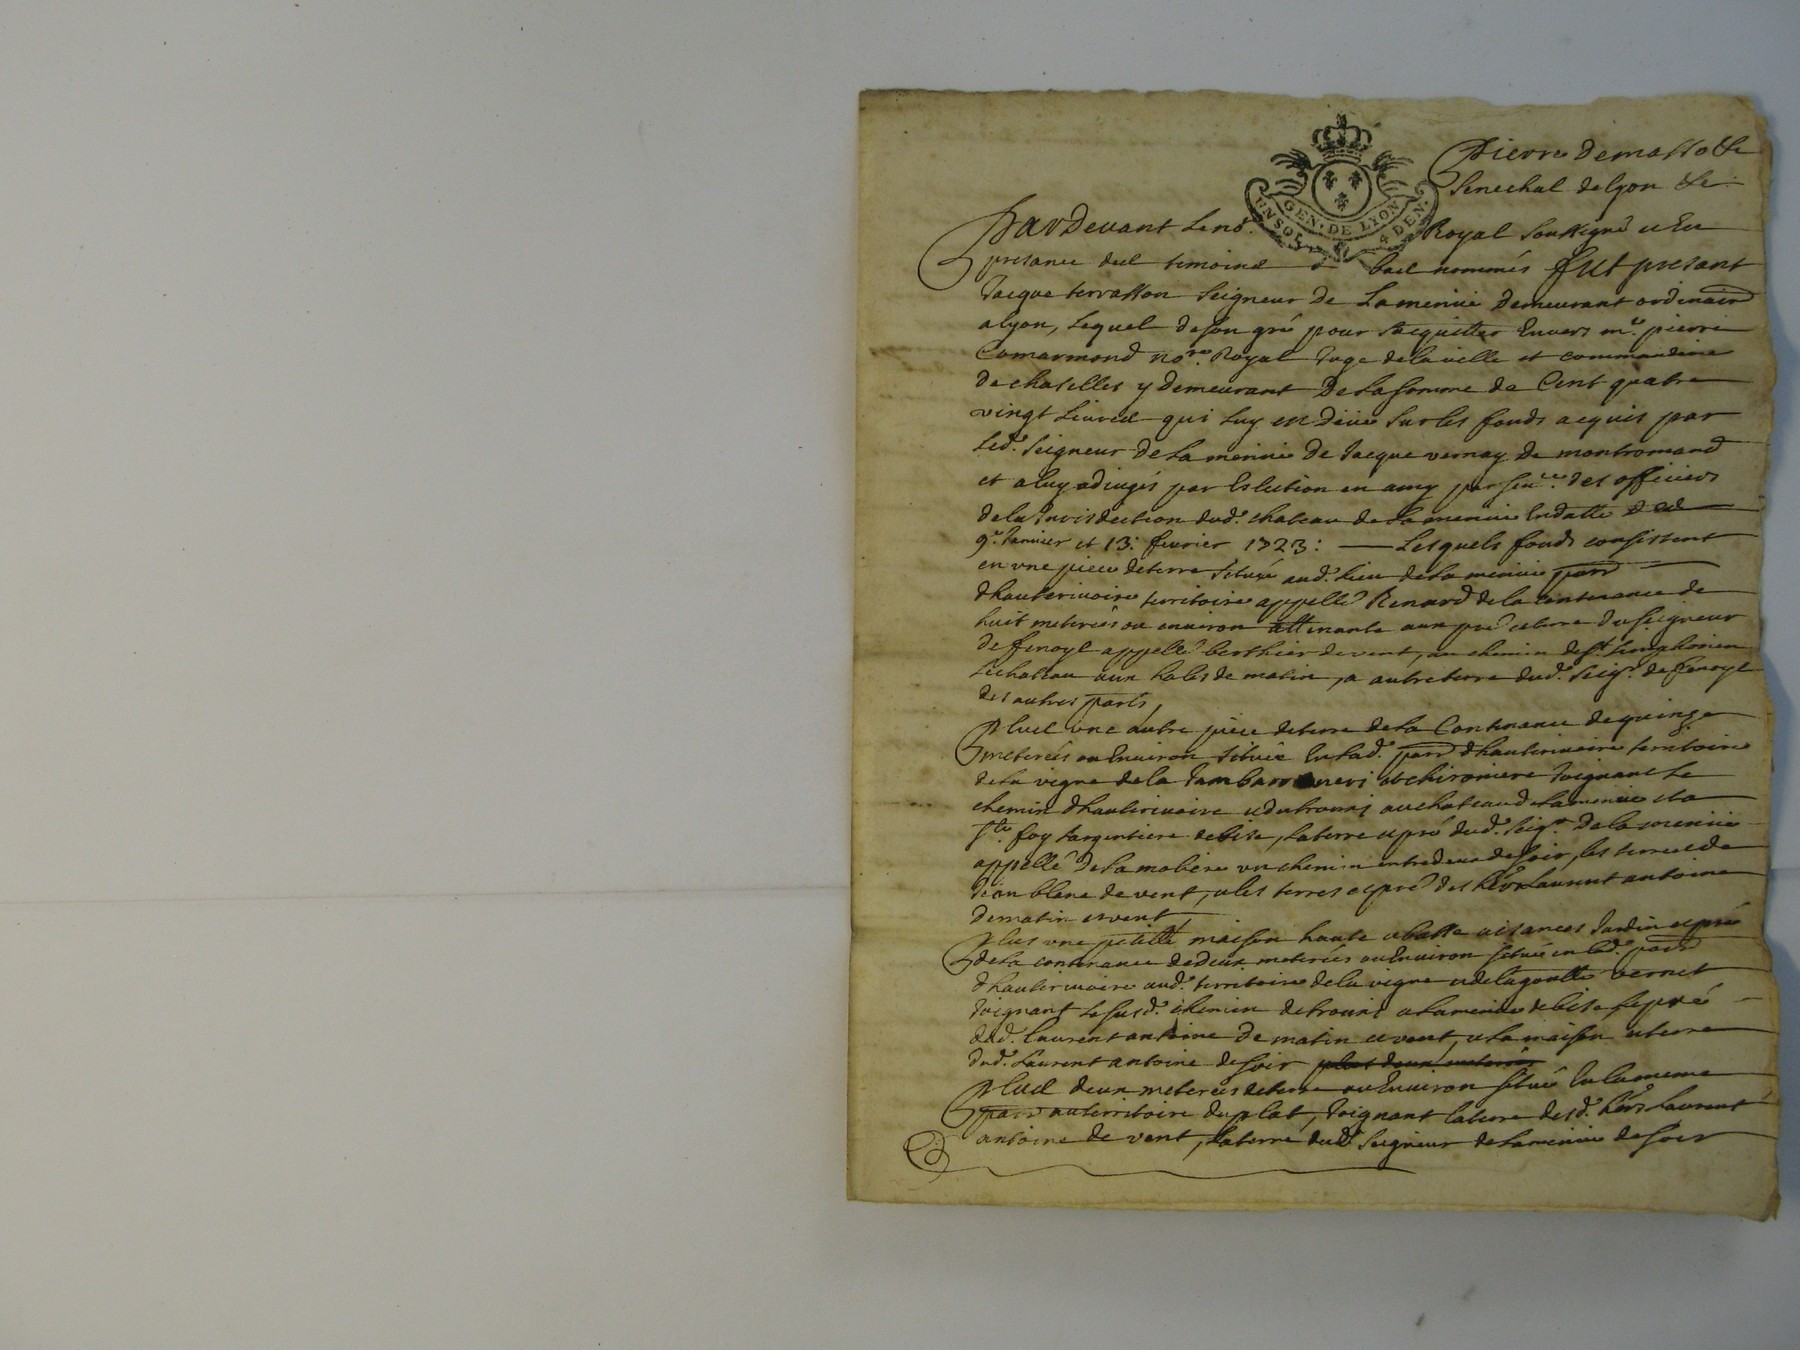 Pierre Demasso &c
Senechal de Lyon &c
GEN. DE LYON
UN SOL 4 DEN.
Pardevant le no.re Royal soussigné et En
presance des temoins bas nommés fut presant
Jacque terrasson Seigneur de La menüe Demeurant ordinair
a Lyon, Lequel de son gré pour s'acquitter Envers m.e pierre
Comarmond no.re Royal Juge de la ville et commanderie
de chaselles y demeurant De La somme de Cent quatre
vingt Livres qui Luy est Düe sur les fonds acquis par
Led. Seigneur de La menüe de Jacque vernay de montromand
et a luy adiugés par Eslection en amy par sen.ce des officiers
de la Jurisdiction dud. chateau de La menüe En datte
9.e Janvier et 13. fevrier 1723: Lesquels fonds consistent
en une piece de terre Située aud. Lieu de La menüe parr
d'hauterivoire territoire appellé Renard de la contenance de
huit meterées ou environ attenante aux pré et terre du Seigneur
de fenoyl appellé berthier de vent, au chemin de S.t simphorien
Lechateau aux hales de matin, a autre terre dud. Seig.r de fenoyl
des autres parts,
Plus une autre piece de terre de la Contenance de quinze
meterées ou Environ Située En lad. parr d'hauterivoire territoire
de la vigne de la et chironiere Joignant Le
chemin d'hauterivoire au chateau de Lamenüe et a
S.te foy Largentiere de bise, La terre et pré dud. Seig.r de la menüe
appellé de La un chemin entredeux de soir, les terres de
Jean blanc de vent, et les terres et pré des hers Laurent antoine
de matin et vent
Plus une petitte maison haute et basse aisances Jardin et pré
de La contenance de deux meterées ou Environ Située en lad. parr
d'hauterivoire aud. territoire de la vigne et de la goutte vernet
Joignant Le susd. chemin de et Lamenüe de bise, Le pré
dud. Laurent antoine De matin et vent, et La maison et terre
dud. Laurent antoine de soir plus deux meterées
Plus deux meterées de terre ou Environ Située En La meme
parr au territoire du plat, Joignant La terre desd. hers Laurent
antoine de vent, La terre dud. Seigneur de Lamenüe de soir